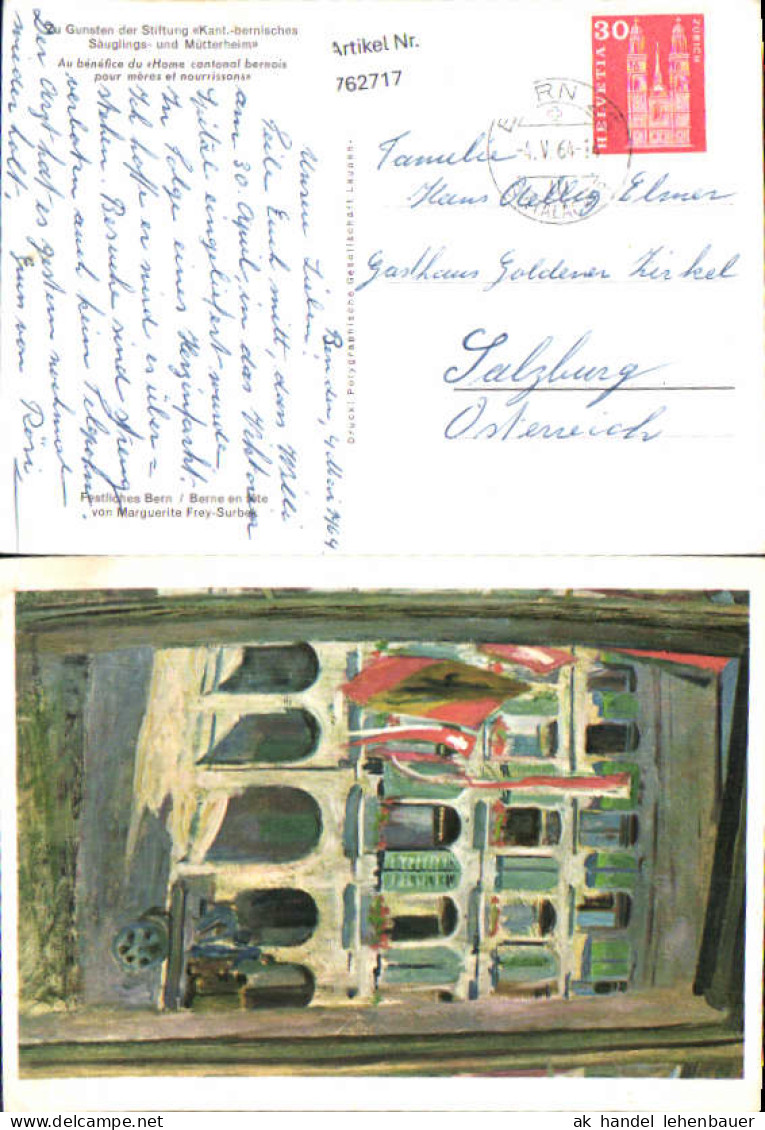 Zu Gunsten der Stiftung «Kant.-bernisches
Säuglings- und Mütterheim»
Au bénéfice du «Home cantonal bernois
pour mères et nourrissons»
Artikel Nr.
762717
HELVETIA 30
ZÜRICH
BERN
-4.V.64-14
Familie
Hans Elmer
Gasthaus Goldener Zirkel
Salzburg
Österreich
Druck: Polygraphische Gesellschaft Laupen-
Bern, den, 4 Mai 1964
Unsere Lieben!
Teile Euch mitt, dass Willi
am 30. April, in das Viktoria
Spital eingeliefert wurde
In folge eines Herzinfarkt.
Ich hoffe er wird es über=
stehen. Besuche sind streng
verboten auch kein Telephon.
Der Arzt hat es gestern nochmal
wieder holt,
Gruss von Rösi
Festliches Bern / Berne en fête
von Marguerite Frey-Surbek
ak handel lehenbauer